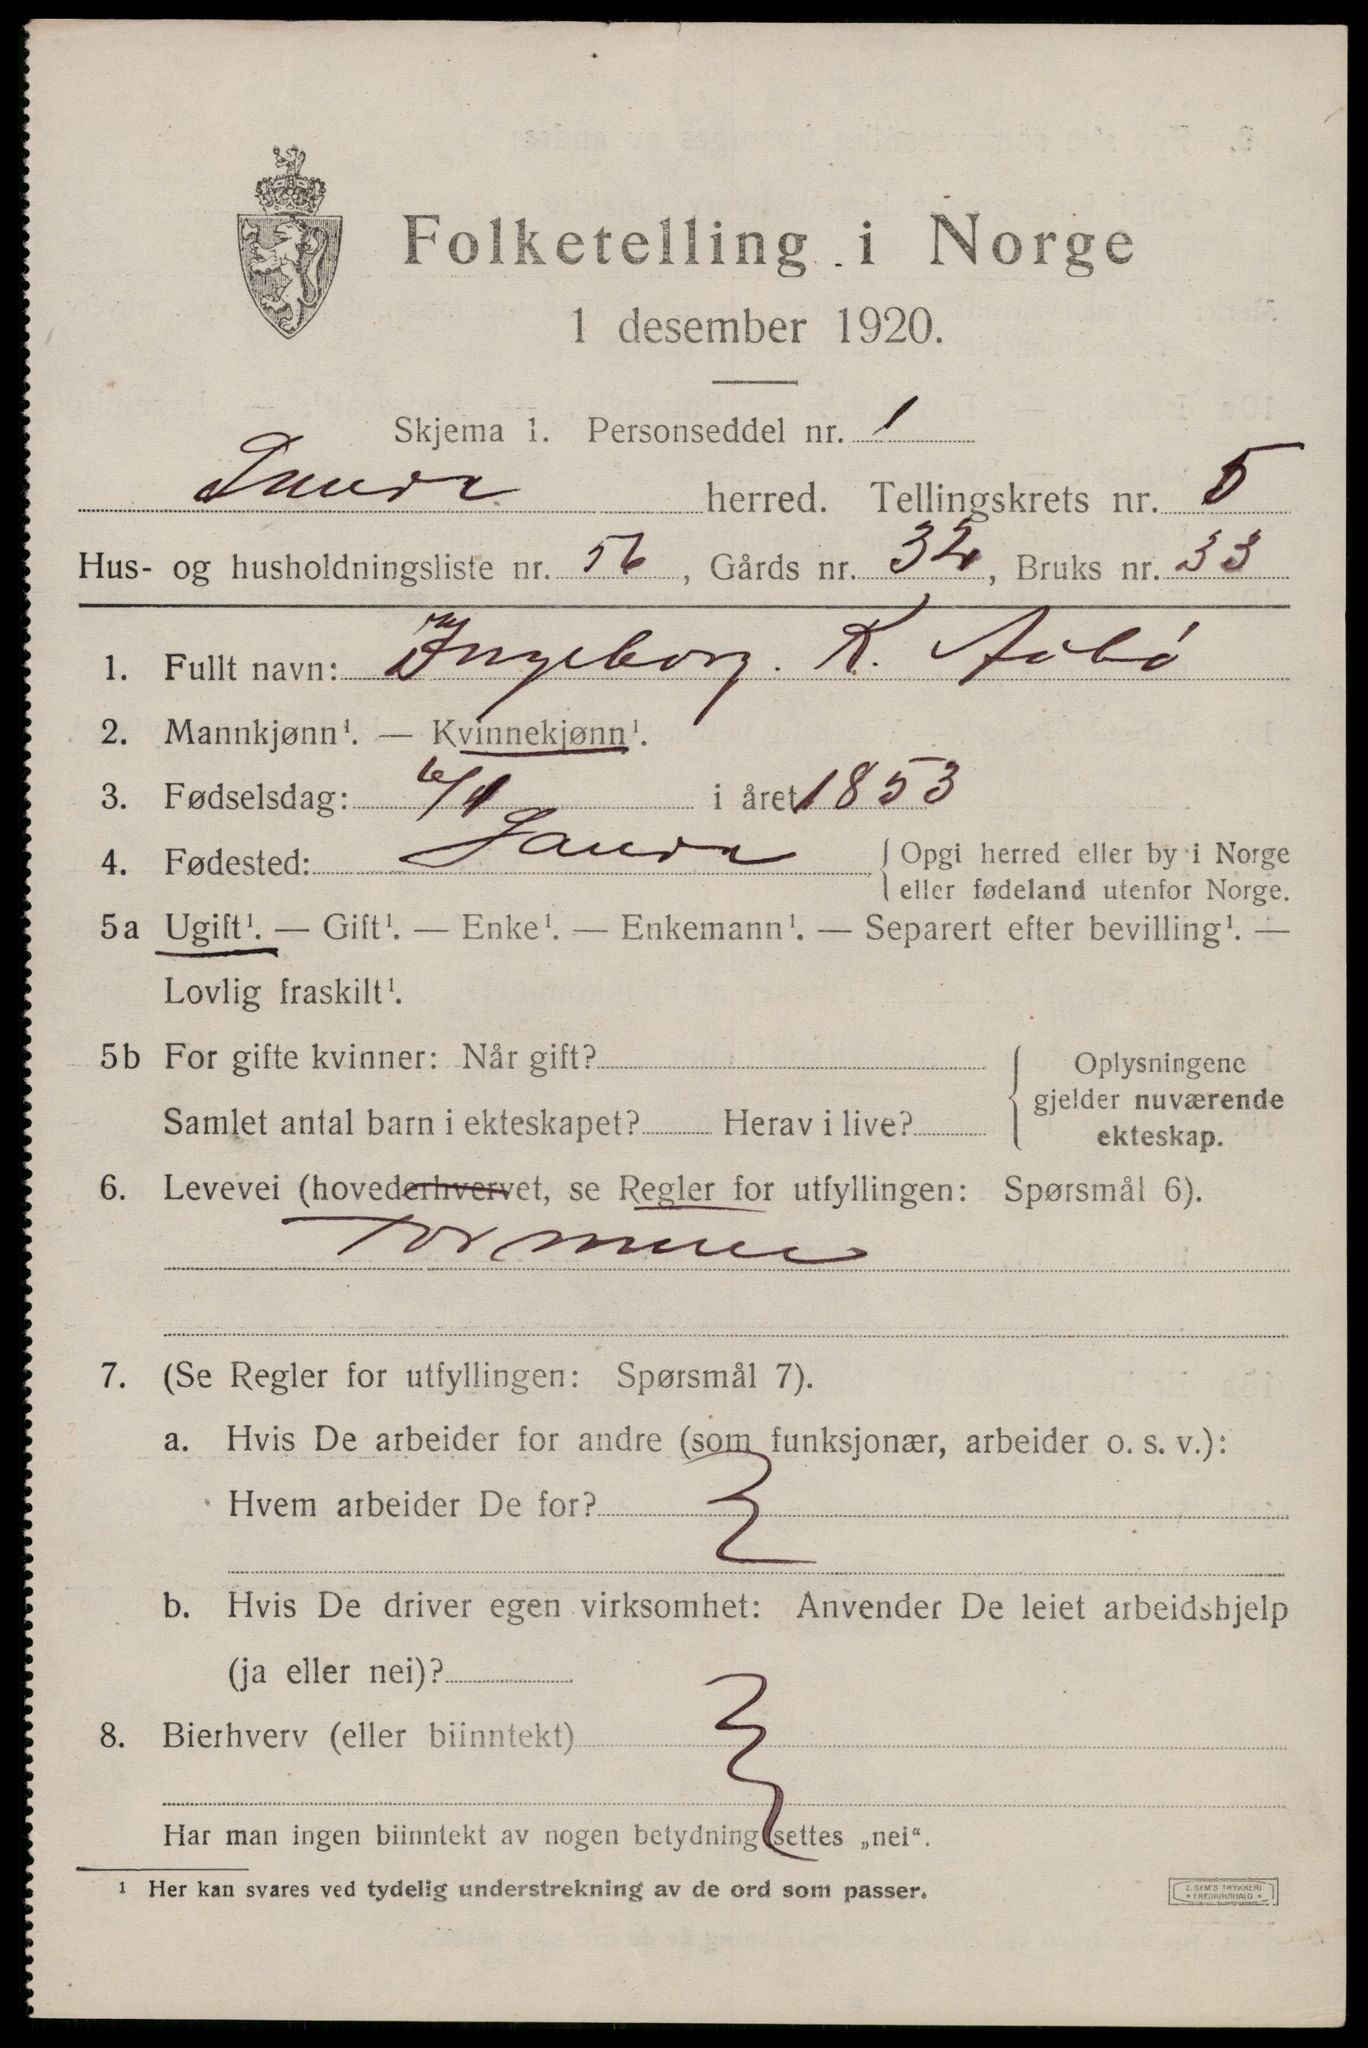 Folketelling i Norge
1 desember 1920.
Skjema 1. Personseddel nr. 1
Sauda herred. Tellingskrets nr. 5
Hus- og husholdningsliste nr. 56, Gårds nr. 32, Bruks nr. 33
1. Fullt navn: Ingeborg. K. Aabø
2. Mannkjønn¹. — Kvinnekjønn¹.
3. Fødselsdag: 6/1 i året 1853
4. Fødested: Sauda { Opgi herred eller by i Norge
eller fødeland utenfor Norge.
5a Ugift¹. — Gift¹. — Enke¹. — Enkemann¹. — Separert efter bevilling¹. —
Lovlig fraskilt¹.
5b For gifte kvinner: Når gift? { Oplysningene
gjelder nuværende
Samlet antal barn i ekteskapet? Herav i live? ekteskap.
6. Levevei (hovederhvervet, se Regler for utfyllingen: Spørsmål 6).
Formue
7. (Se Regler for utfyllingen: Spørsmål 7).
a. Hvis De arbeider for andre (som funksjonær, arbeider o. s. v.):
Hvem arbeider De for?
b. Hvis De driver egen virksomhet: Anvender De leiet arbeidshjelp
(ja eller nei)?
8. Bierhverv (eller biinntekt)
Har man ingen biinntekt av nogen betydning settes „nei“.
¹ Her kan svares ved tydelig understrekning av de ord som passer.
E. SEM'S TRYKKERI
FREDRIKSHALD